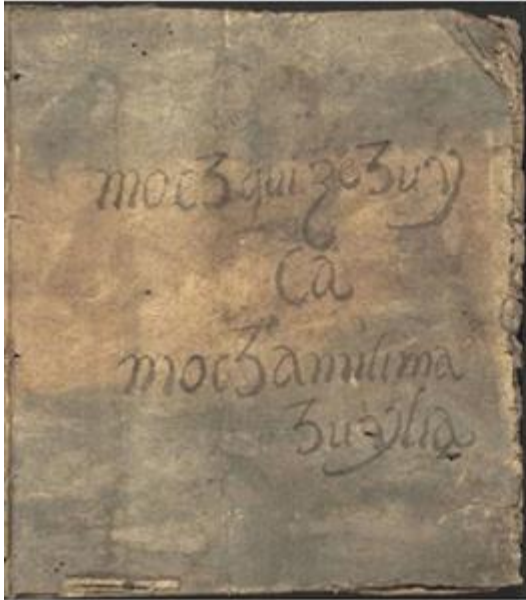 moc3quize3uy
Ca
moc3amilima
3uylia